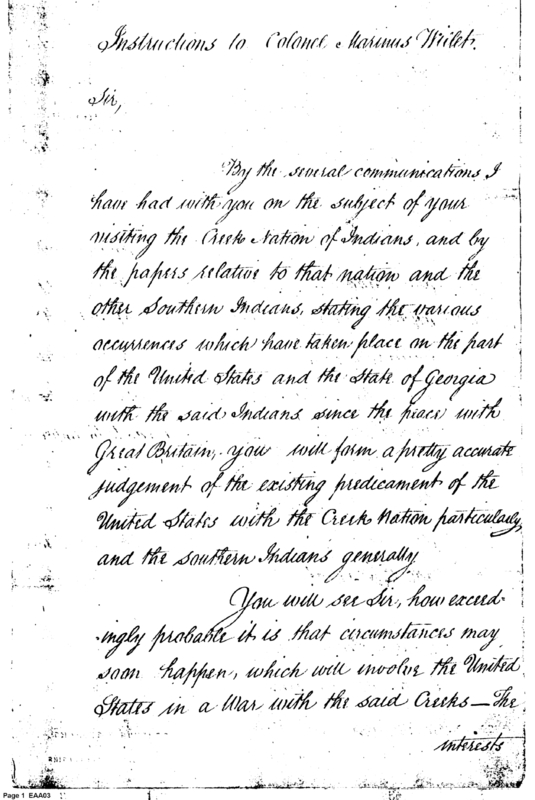 Instructions to Colonel Marinus Willet.
Sir,
By the several communications I
have had with you on the subject of your
visiting the Creek Nation of Indians, and by
the papers relative to that nation and the
other Southern Indians, stating the various
occurrences which have taken place on the part
of the United States and the State of Georgia
with the said Indians since the peace with
Great Britain, you will form a pretty accurate
judgement of the existing predicament of the
United States with the Creek Nation particularly,
and the southern Indians generally
You will see Sir, how exceed-
-ingly probable it is that circumstances may
soon happen, which will involve the United
States in a War with the said Creeks — The
interests
Page 1 EAA03